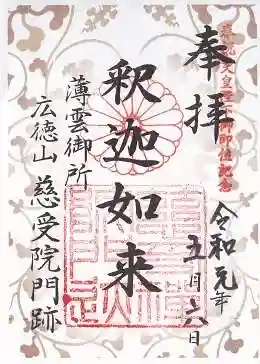 奉拝
天皇陛下御即位記念
令和元年
五月六日
釈迦如来
薄雲御所
広徳山 慈受院門跡